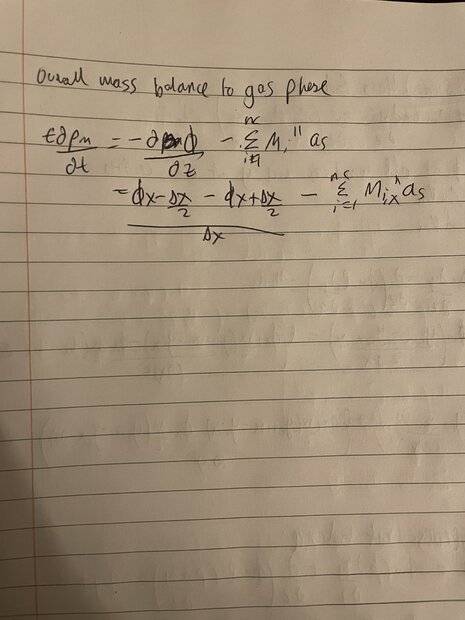 Overall mass balance to gas phase
ε∂ρm/∂t = -∂ϕ/∂z - Σ i=1 nc Mi'' as
= (ϕx-Δx/2 - ϕx+Δx/2)/Δx - Σ i=1 nc Mix'' as